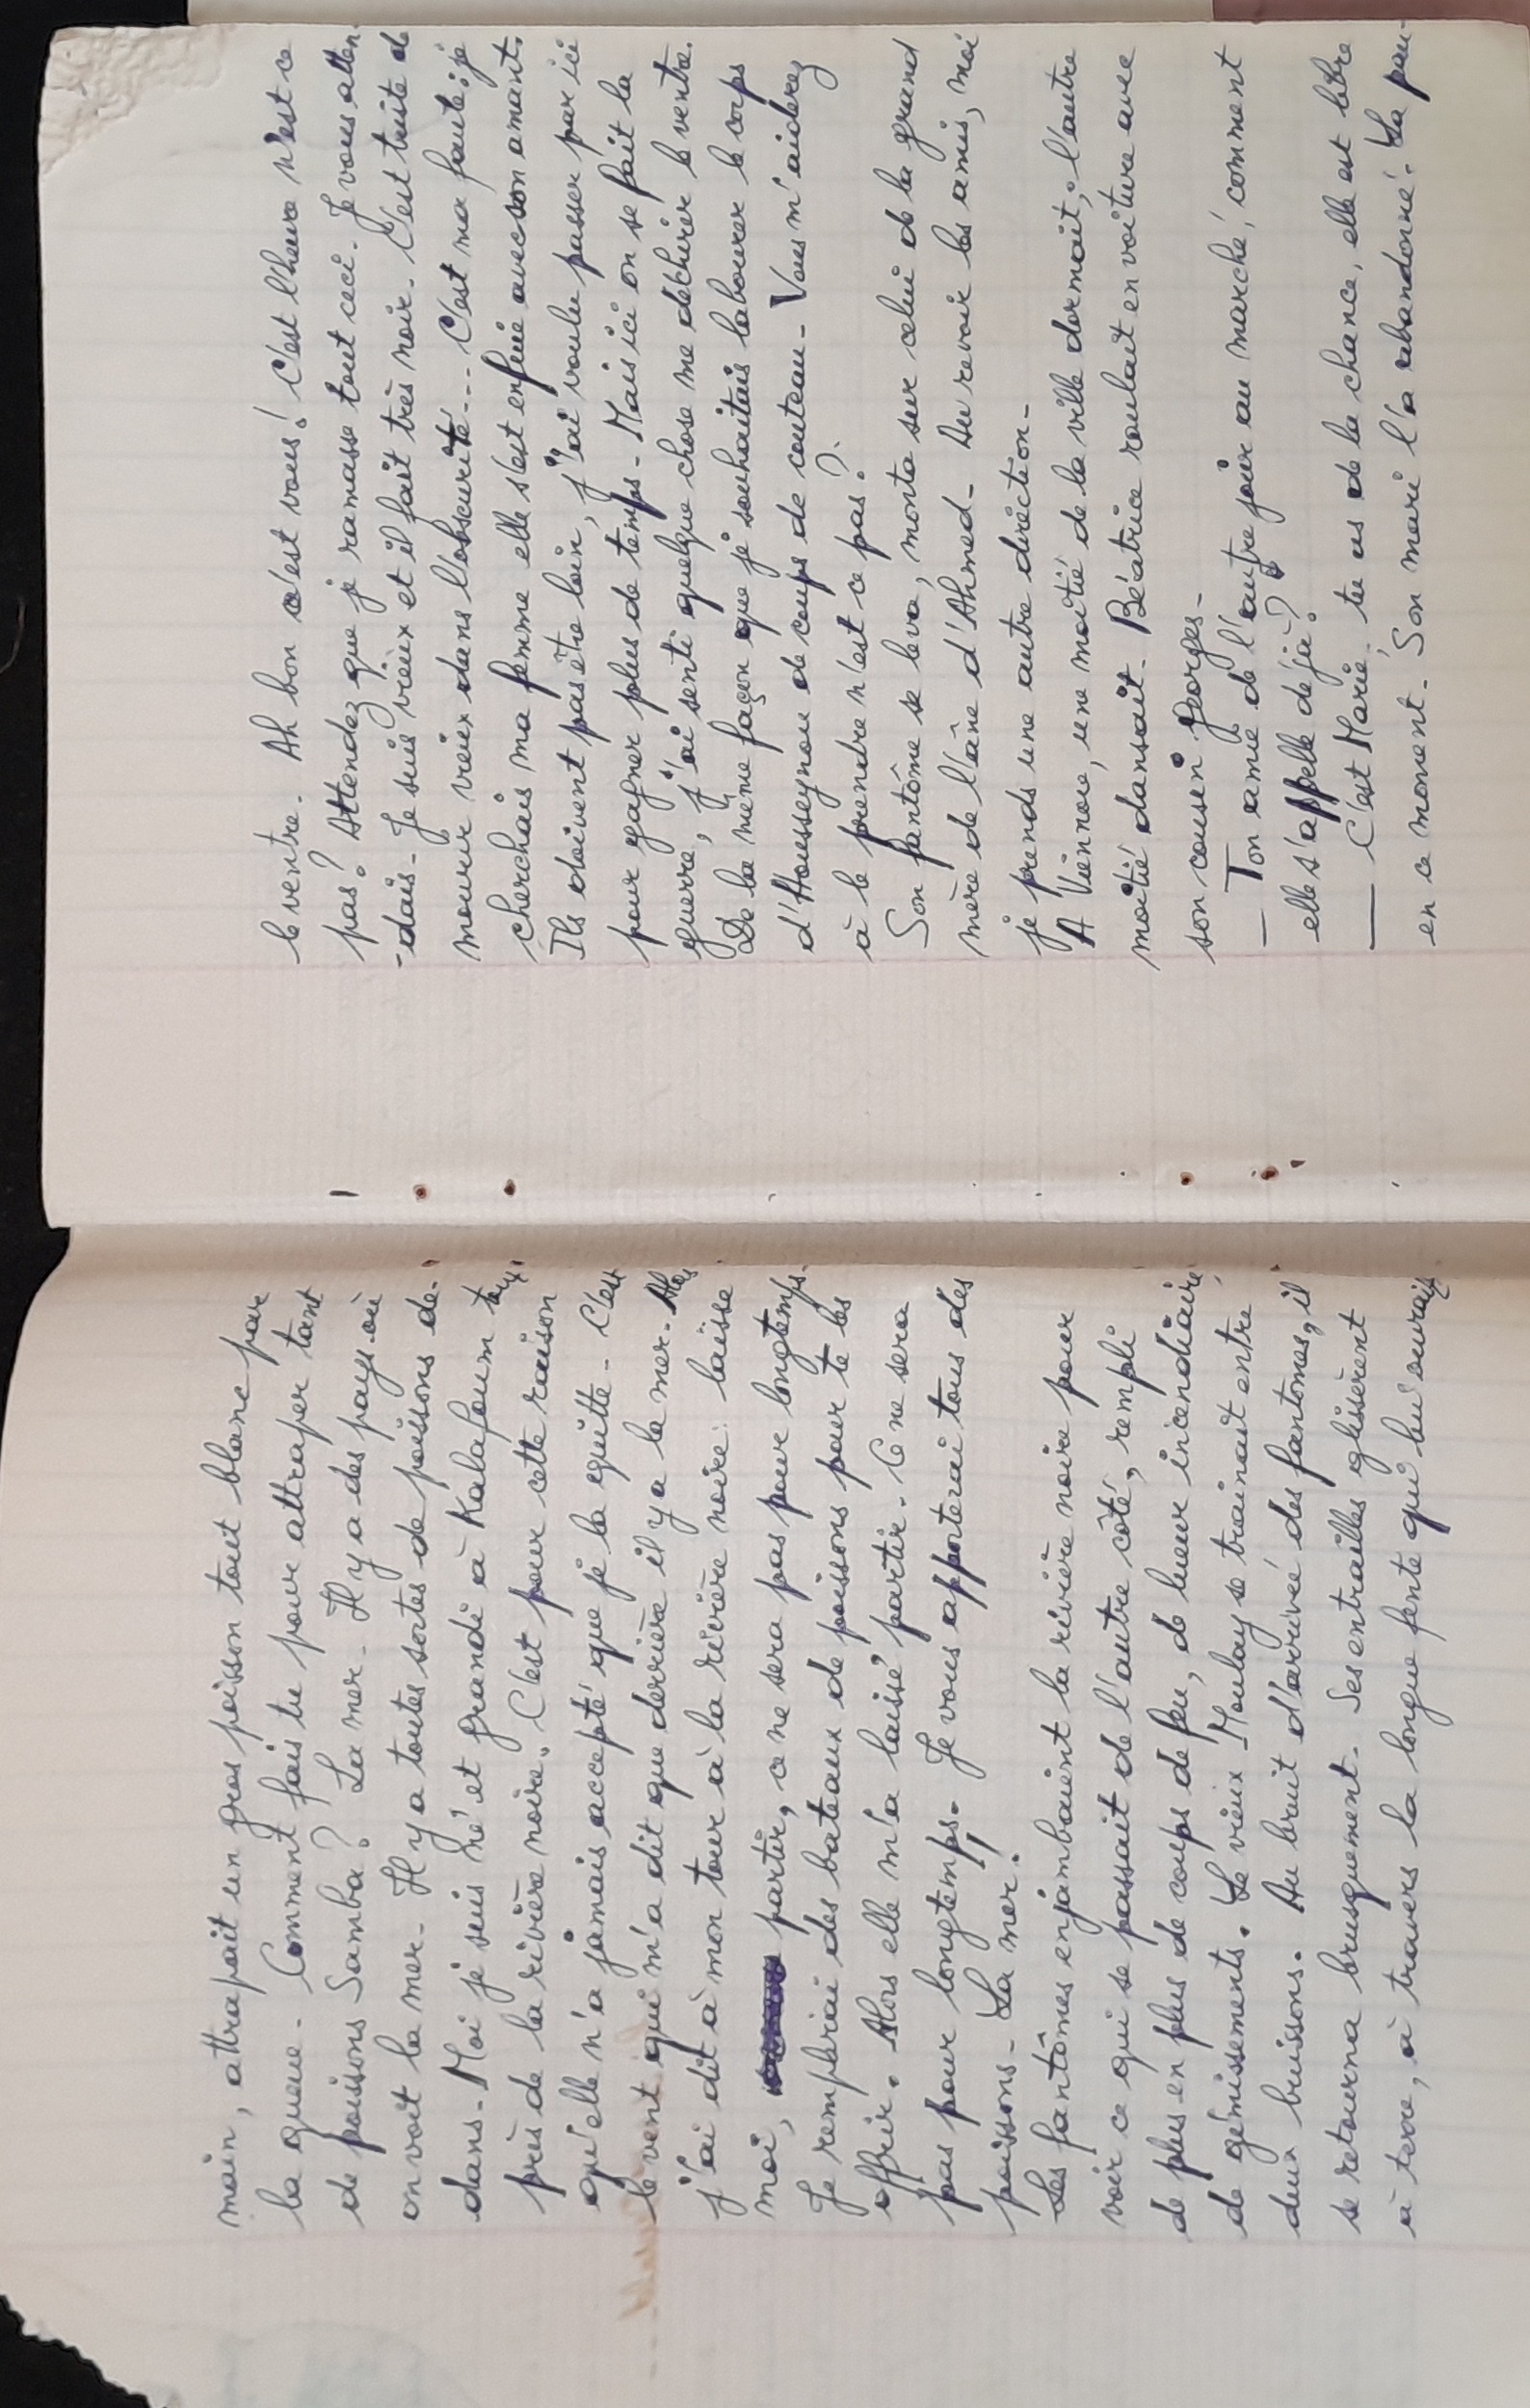 main, attrapait un gros poisson tout blanc par
la queue. Comment fais tu pour attraper tant
de poissons Samba? La mer. Il y a des pays où
on voit la mer. Il y a toutes sortes de poissons de-
dans. Moi je suis né et grandi à Kalafoum tout
près de la rivière noire. C'est pour cette raison
qu'elle n'a jamais accepté que je la quitte. C'est
le vent qui m'a dit que derrière il y a la mer. Alors
j'ai dit à mon tour à la rivière noire: laisse
moi, partir, ce ne sera pas pour longtemps.
Je remplirai des bateaux de poissons pour te les
offrir. Alors elle m'a laissé partir. Ce ne sera
pas pour longtemps. Je vous apporterai tous des
poissons. La mer!
Les fantômes enjambaient la rivière noire pour
voir ce qui se passait de l'autre côté, rempli
de plus en plus de coups de feu, de lueur incendiaire,
de gémissements. Le vieux Moulay se trainait entre
deux buissons. Au bruit d'arrivée des fantomes, il
se retourna brusquement. Ses entrailles glissèrent
à terre, à travers la longue fente qui lui ouvrait
le ventre. Ah bon c'est vous! C'est l'heure n'est ce
pas? Attendez que je ramasse tout ceci. Je vous atten
-dais. Je suis vieux et il fait très noir. C'est triste de
mourir vieux dans l'obscurité... C'est ma faute: je
cherchais ma femme elle s'est enfuie avec son amant.
Ils doivent pas être loin, j'ai voulu passer par ici
pour gagner plus de temps. Mais ici on se fait la
guerre, j'ai senti quelque chose me déchirer le ventre.
De la même façon que je souhaitais labourer le corps
d'Housseynou de coups de couteau. Vous m'aiderez
à le prendre n'est ce pas?
Son fantôme se leva, monta sur celui de la grand
mère de l'âne d'Ahmed. Au revoir les amis, moi
je prends une autre direction.
A Viennove, une moitié de la ville dormait, l'autre
moitié dansait. Béatrice roulait en voiture avec
son cousin Georges.
— Ton amie de l'autre jour au marché, comment
elle s'appelle déjà?
— C'est Marie. tu as de la chance, elle est libre
en ce moment. Son mari l'a abandonné. La pau-